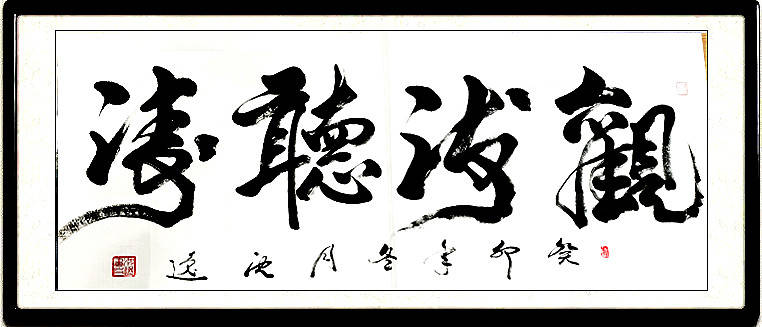 觀海聽濤
癸卯年冬月